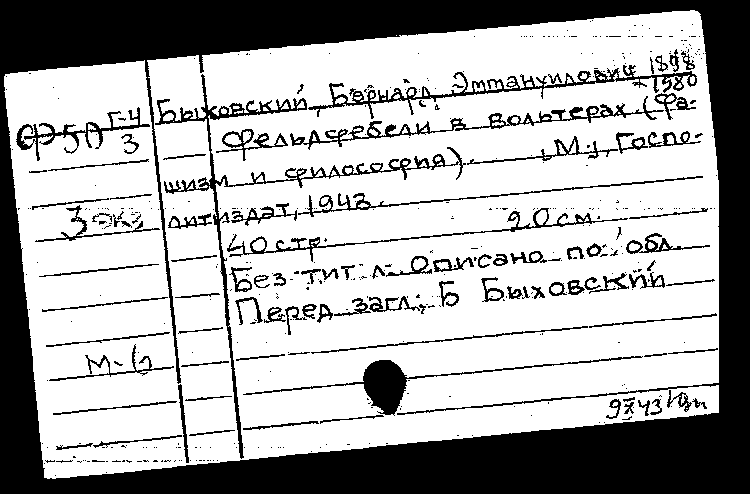 Быховский, Бернард Эммануилович 1898
-1980
Г-4
3
Фельдфебели в вольтерах. (Фа-
шизм и философия).  , М., Госпо-
литиздат, 1943.
3 экз
40 стр. 20 см.
Без тит. л. Описано по обл.
Перед загл.: Б Быховский
М-б